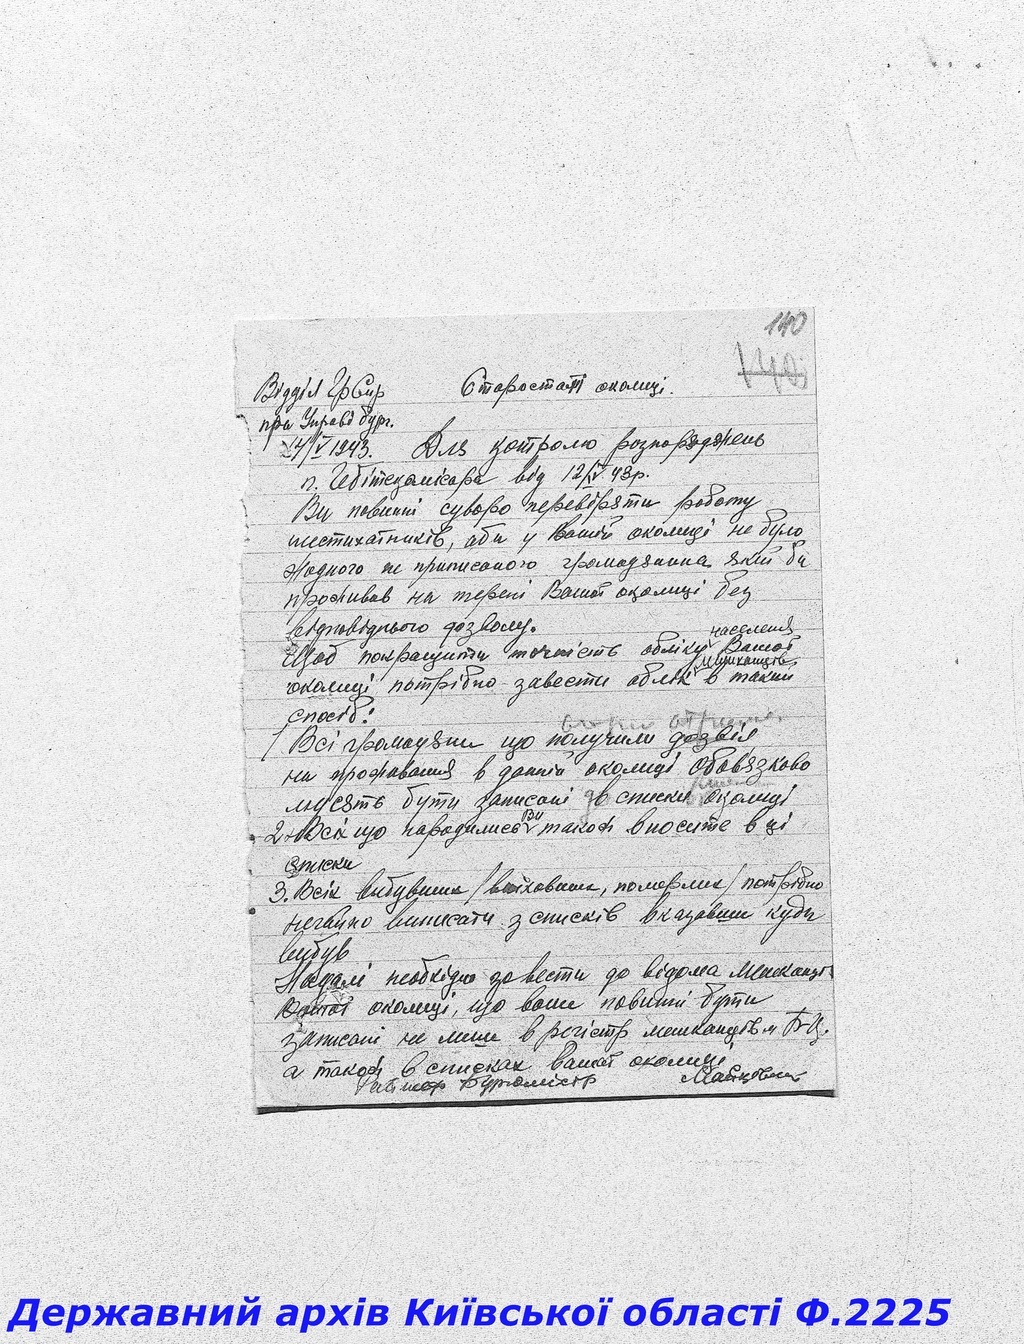 140
Відділ Гр Спр Старостам околиці.
при Управі бург.
14/V 1943. Для контролю розпоряджень
п. Гебітскомісара від 12/IV 43р.
Ви повинні суворо перевіряти роботу
шестихатників, аби у Вашій околиці не було
жодного не приписаного громадянина який би
проживав на терені Вашої околиці без
відповіднього дозволу.
населення
Щоб покращити точність обліку Вашої
мешканців
околиці потрібно завести облік в такий
спосіб:
1/ Всі громадяни що получили дозвіл
на проживання в данній околиці обов'язково
мусять бути записані в списки околиці
2. Всіх що народились Ви також вносите в ці
списки
3. Всіх вибувших /виїхавших, померлих/ потрібно
негайно виписати з списків вказавши куди
вибув
Надалі необхідно завести до відома мешканців
Вашої околиці, що вони повинні бути
записані не лише в регістр мешканців м Б-Ц.
а також в списках вашої околиці
Бургомістр
Державний архів Київської області Ф.2225